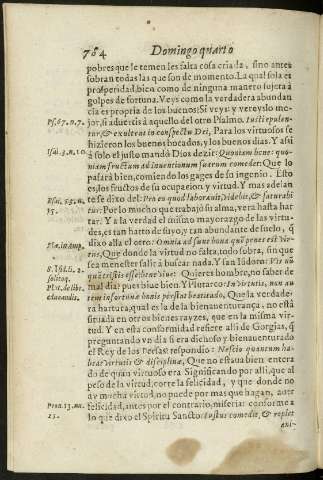 784 Domingo quarto
pobres que le temen les falta cosa criada, sino antes
sobran todas las que son de momento. La qual sola es
prosperidad, bien como de ninguna manera sujeta à
golpes de fortuna. Veys como la verdadera abundan
cia es propria de los buenos: Si veys: y vereyslo me-
Ps. 67. n. 7. jor, si aduertis à aquello del otro Psalmo. Iusti epulen-
tur, & exultent in conspectu Dei, Para los virtuosos se
hizieron los buenos bocados, y los buenos dias. Y assi
Isai. 3. n. 10 à solo el justo mandò Dios dezir: Quoniam bene: quo-
niam fructum ad inuentionum suarum comedet: Que lo
passarà bien, comiendo los gages de su ingenio. Esto
es, los fructos de su ocupacion y virtud. Y mas adelan
Isai. 53. n. te se dixo del: Pro eo quod laborauit, videbit, & saturabi
tur: Por lo mucho que trabajò su alma, vera hasta har
tar. Y a la verdad el mismo mayorazgo de las virtu-
des, es tan harto de suyo, y tan abundante de suelo, q̃
dixo alla el otro: Omnia ad sunt bona quẽ penes est vir-
tus, Que donde la virtud no falta, todo sobra, sin que
sea menester salir à buscar nada. Y san Isidoro: Vis
nunquam tristis esse? bene viue: Quieres hombre, no saber de
mal dia? pues biue bien. Y Plutarco: In virtutis, non au
tem in fortunæ bonis præstat beatitudo, Que la verdade-
ra hartura, qual es la de la bienauenturança, no està
situada en otros bienes rayzes, que en la misma vir-
tud. Y en esta conformidad refiere alli de Gorgias, q̃
preguntando vn dia si era dichoso y bienauenturado
el Rey de los Persas: respondio: Nescio quantum ha-
beat virtutis & disciplinæ, Que no estaua bien entera
do de quan virtuoso era. Significando por alli, que al
peso de la virtud, corre la felicidad, y que donde no
ay mucha virtud, no puede por mas que hagan, auer
Prou. 13. nu. felicidad, antes por el contrario, miseria: conforme a
25. lo que dixo el Spiritu Sancto: Iustus comedit, & replet
ani-